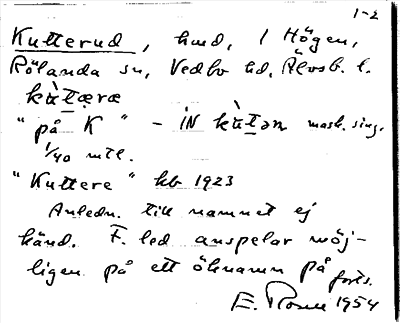 1-2
Kutterud, hmd, i Högen,
Rölanda sn, Vedbo hd, Älvsb. l.
kùtæræ
"på K" - iN kùtən mask. sing.
1/40 mtl.
"Kuttere" kb 1923
Anledn. till namnet ej
känd. F. led anspelar möj-
ligen på ett öknamn på
E. 1954